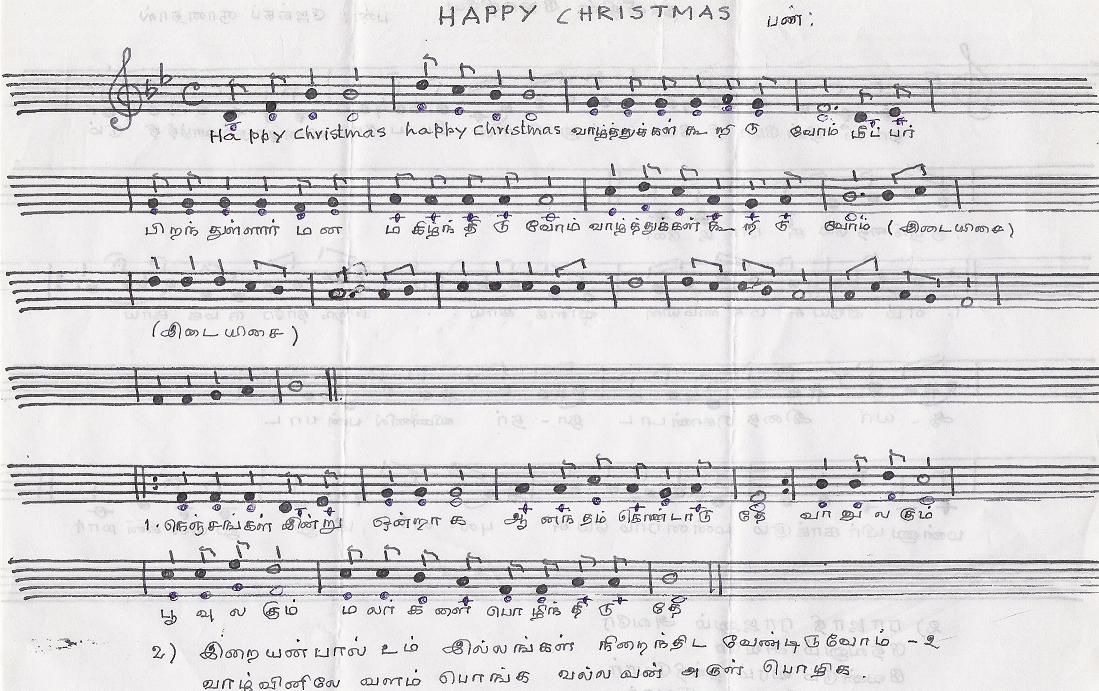 HAPPY CHRISTMAS பண்:
Happy Christmas happy Christmas வாழ்த்துக்கள் கூறிடுவோம் மீட்பர்
பிறந்துள்ளார் மன மகிழ்ந்திடுவோம் வாழ்த்துக்கள் கூறிடுவோம் (இடையிசை)
(இடையிசை)
1. நெஞ்சங்கள் இன்று ஒன்றாக ஆனந்தம் கொண்டாடுதே வானுலகும்
பூவுலகும் மலர்களை பொழிந்திடுதே
2) இறையன்பால் உம் இல்லங்கள் நிறைந்திட வேண்டிடுவோம் -2
வாழ்வினிலே வளம் பொங்க வல்லவன் அருள் பொழிக.